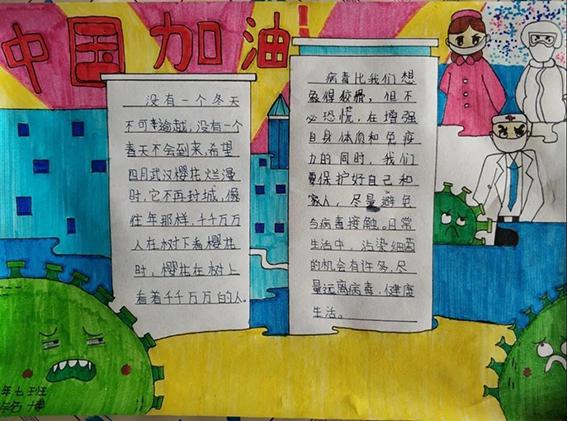 中国加油!
没有一个冬天
不可逾越,没有一个
春天不会到来,希望
四月武汉樱花烂漫
时,它不再封城,像
往年那样,千千万万
人在树下看樱花
时,樱花在树上
看着千千万万的人。
病毒比我们想
象得狡猾,但不
必恐慌,在增强
自身体质和免疫
力的同时,我们
要保护好自己和
家人,尽量避免
与病毒接触。日常
生活中,沾染细菌
的机会有许多,尽
量远离病毒,健康
生活。
年七班